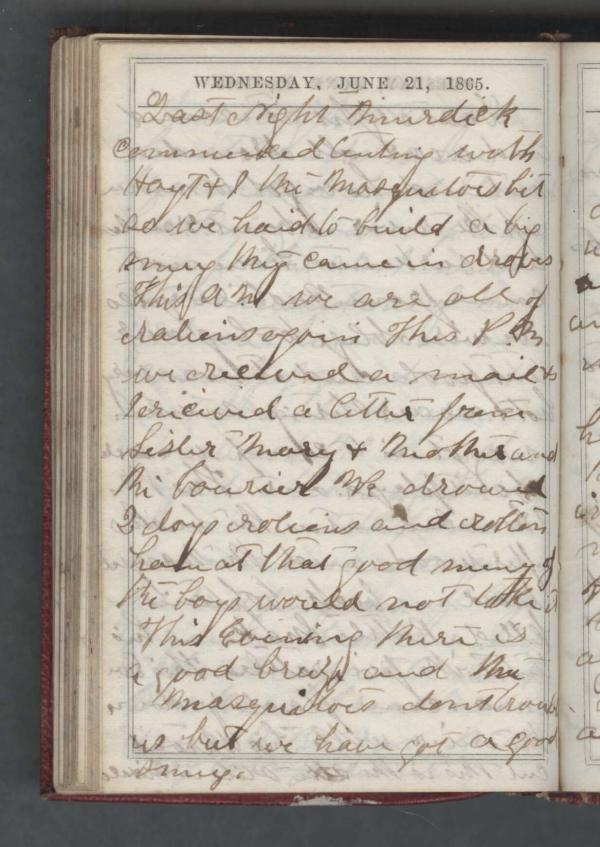 WEDNESDAY, JUNE 21, 1865.
Last Night Burdick
commenced tenting with
Hoyt & I the Masquitois bit
so we haid to build a big
smug they came in droves
This A M we are all of
rations again This P. M
we received a mail &
I received a letter from
Sister Mary & Mother and
the bourier We drawed
2 days rations and rotten
ham at that good meny of
the boys would not take it
This Evening there is
a good breze and the
Masquitois dont trouble
us but we have got a good
smug.